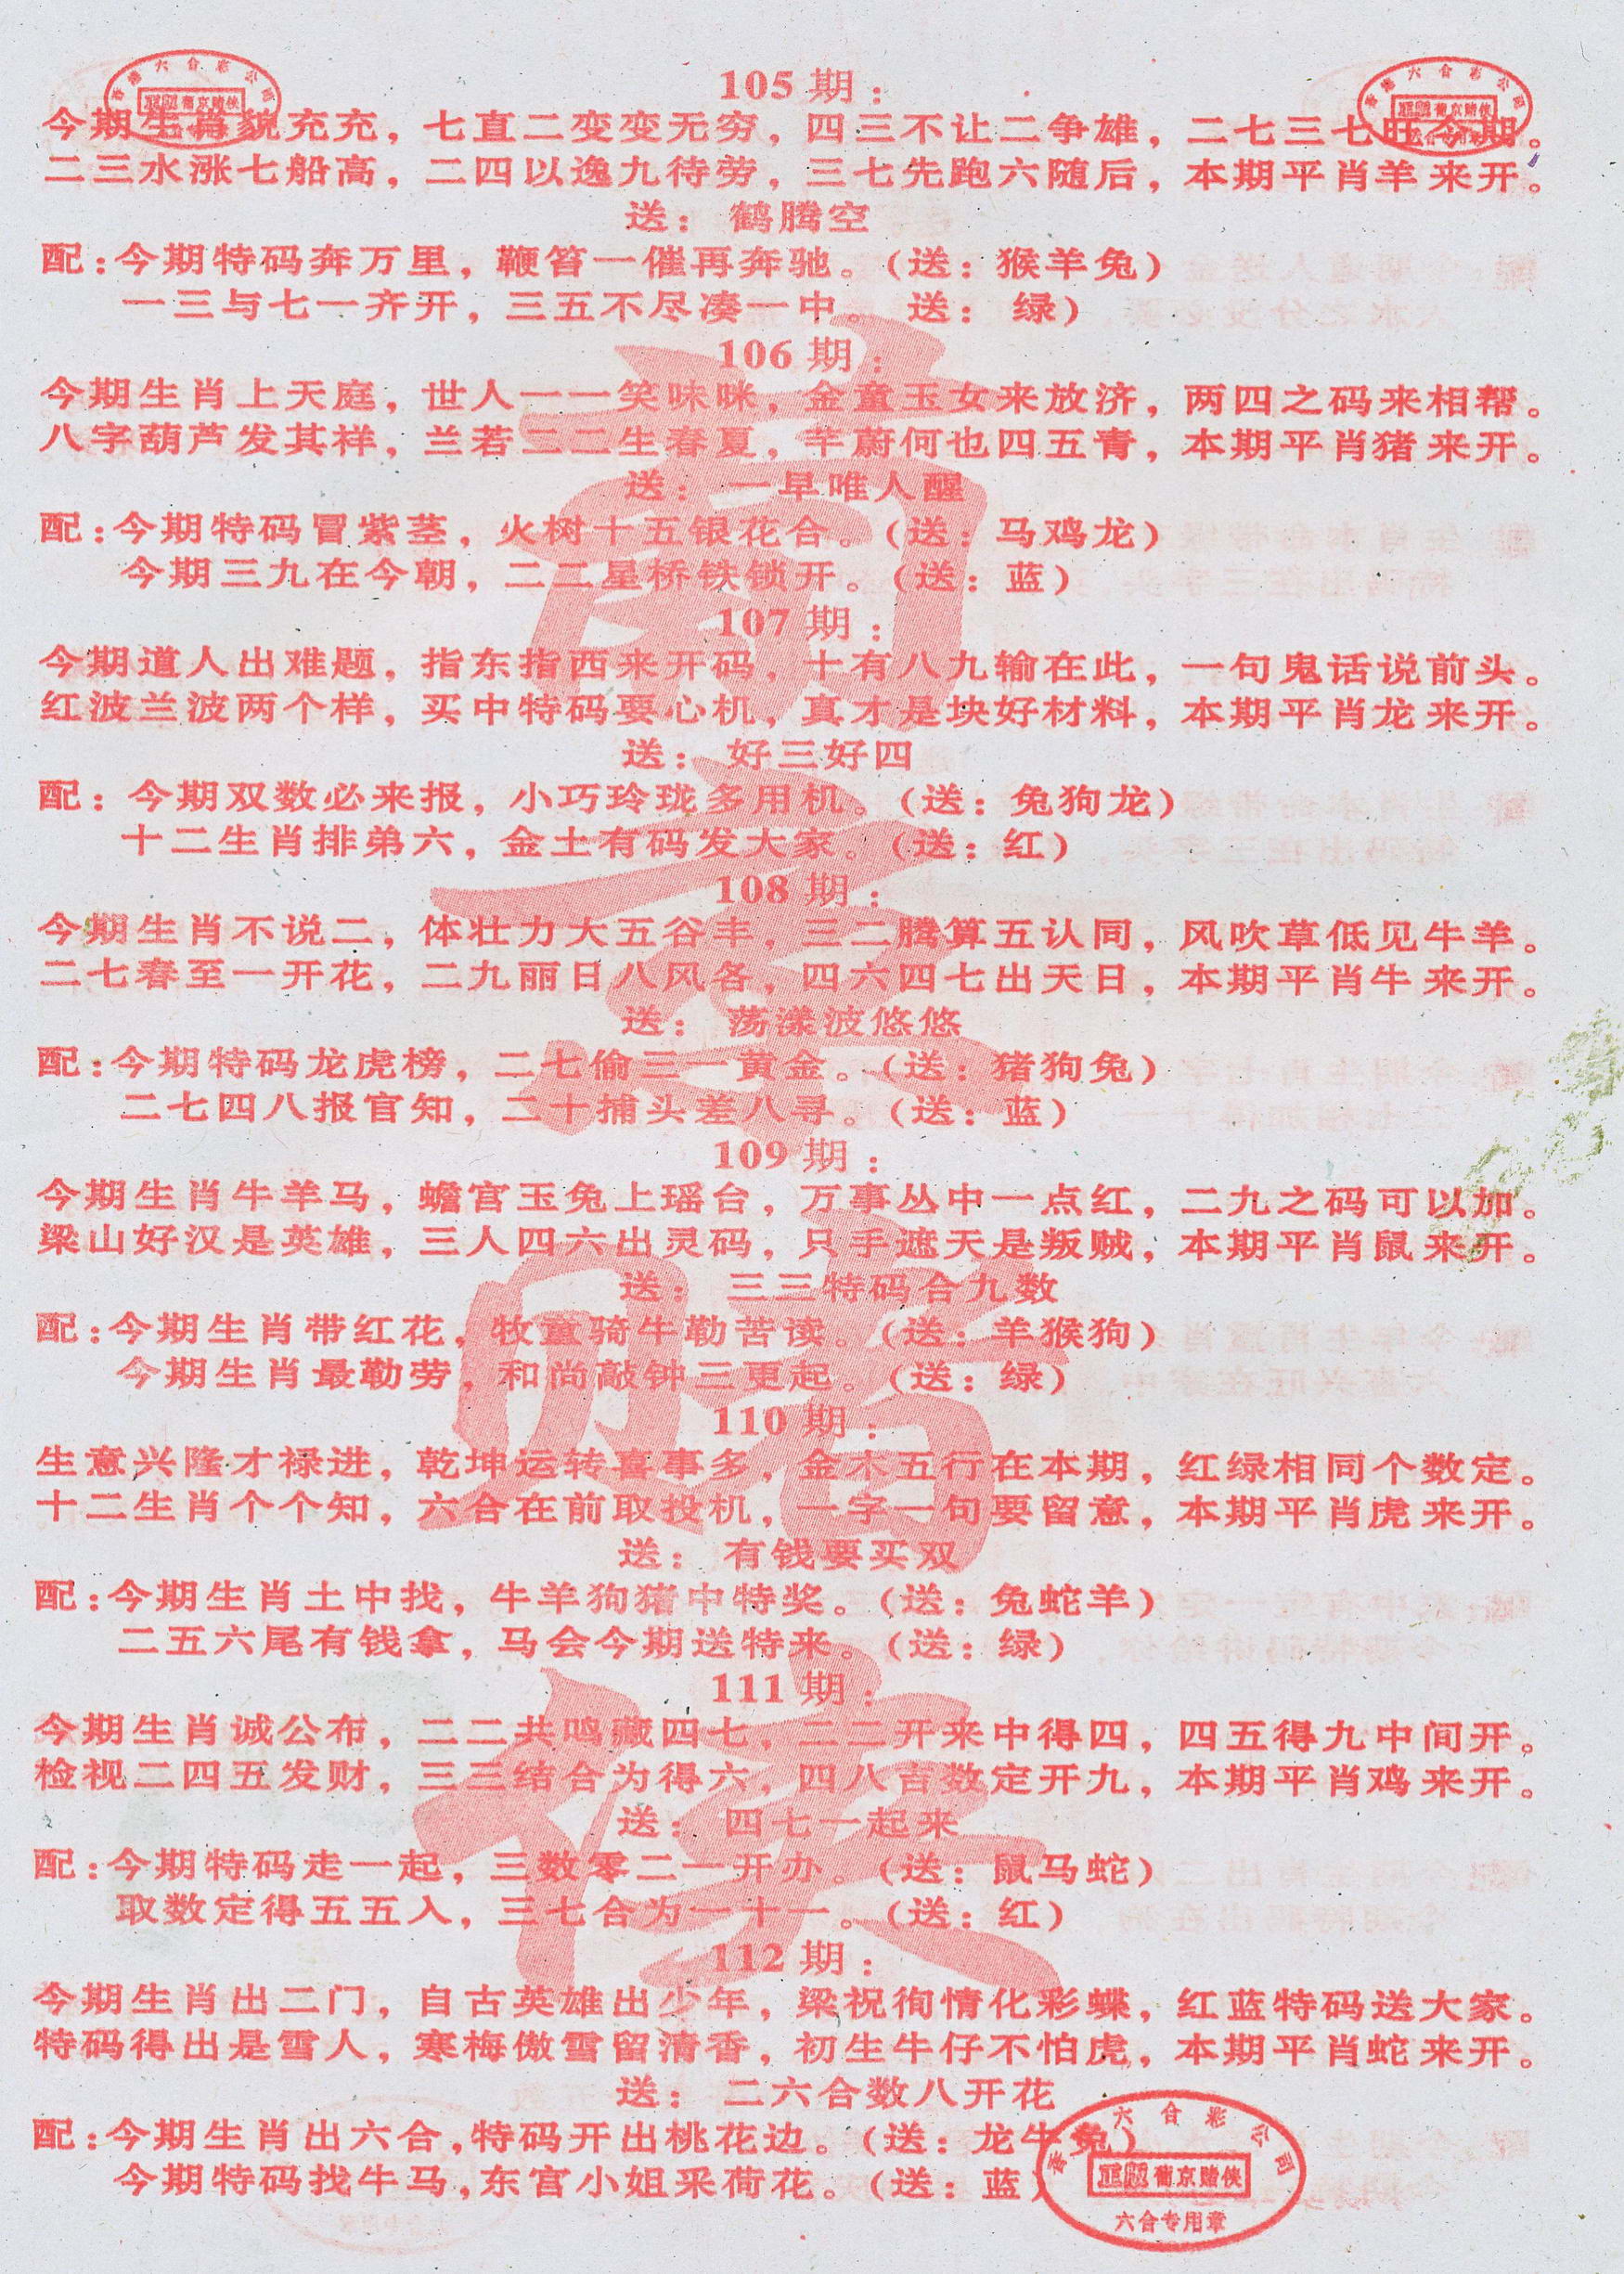 105 期：
今期生肖貌充充，七直二变变无穷，四三不让二争雄，二七三七旺今期。
二三水涨七船高，二四以逸九待劳，三七先跑六随后，本期平肖羊来开。
送：鹤腾空
配：今期特码奔万里，鞭笞一催再奔驰。（送：猴羊兔）
一三与七一齐开，三五不尽凑一中。 送：绿）
106 期：
今期生肖上天庭，世人一一笑味咪，金童玉女来放济，两四之码来相帮。
八字葫芦发其祥，兰若二二生春夏，芊蔚何也四五青，本期平肖猪来开。
送：一早唯人醒
配：今期特码冒紫茎，火树十五银花合。（送：马鸡龙）
今期三九在今朝，二二星桥铁锁开。（送：蓝）
107 期：
今期道人出难题，指东指西来开码，十有八九输在此，一句鬼话说前头。
红波兰波两个样，买中特码要心机，真才是块好材料，本期平肖龙来开。
送：好三好四
配：今期双数必来报，小巧玲珑多用机。（送：兔狗龙）
十二生肖排弟六，金土有码发大家。（送：红）
108 期：
今期生肖不说二，体壮力大五谷丰，三二腾算五认同，风吹草低见牛羊。
二七春至一开花，二九丽日八风各，四六四七出天日，本期平肖牛来开。
送：荡漾波悠悠
配：今期特码龙虎榜，二七偷三一黄金。（送：猪狗兔）
二七四八报官知，二十捕头差八寻。（送：蓝）
109 期：
今期生肖牛羊马，蟾宫玉兔上瑶台，万事丛中一点红，二九之码可以加。
梁山好汉是英雄，三人四六出灵码，只手遮天是叛贼，本期平肖鼠来开。
送：三三特码合九数
配：今期生肖带红花，牧童骑牛勒苦读。（送：羊猴狗）
今期生肖最勒劳，和尚敲钟三更起。（送：绿）
110 期：
生意兴隆才禄进，乾坤运转喜事多，金木五行在本期，红绿相同个数定。
十二生肖个个知，六合在前取投机，一字一句要留意，本期平肖虎来开。
送：有钱要买双
配：今期生肖土中找，牛羊狗猪中特奖。（送：兔蛇羊）
二五六尾有钱拿，马会今期送特来。（送：绿）
111 期：
今期生肖诚公布，二二共鸣藏四七，二二开来中得四，四五得九中间开。
检视二四五发财，三三结合为得六，四八吉数定开九，本期平肖鸡来开。
送：四七一起来
配：今期特码走一起，三数零二一开办。（送：鼠马蛇）
取数定得五五入，三七合为一十一。（送：红）
112 期：
今期生肖出二门，自古英雄出少年，梁祝徇情化彩蝶，红蓝特码送大家。
特码得出是雪人，寒梅傲雪留清香，初生牛仔不怕虎，本期平肖蛇来开。
送：二六合数八开花
配：今期生肖出六合，特码开出桃花边。（送：龙牛兔）
今期特码找牛马，东宫小姐采荷花。（送：蓝）
香港六合彩公司
正版 葡京赌侠
六合专用章